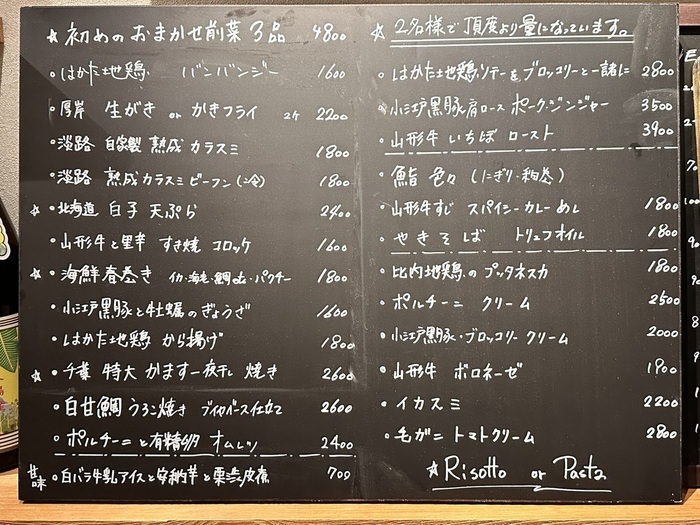 ☆ 初めのおまかせ前菜 3品 4800
・はかた地鶏 バンバンジー 1600
・厚岸 生がき or かきフライ 2ケ 2200
・淡路 自家製 熟成 カラスミ 1800
・淡路 熟成カラスミビーフン(冷) 1800
☆・北海道 白子 天ぷら 2400
・山形牛と里芋 すき焼 コロッケ 1600
☆・海鮮春巻き イカ・海老・鯛 etc・パクチー 1800
・小江戸黒豚と牡蠣のぎょうざ 1600
・はかた地鶏 から揚げ 1800
☆・千葉 特大 かます一夜干し 焼き 2600
・白甘鯛 うろこ焼き ブイヤベース仕立て 2600
・ポルチーニと有精卵 オムレツ 2400
甘味 ・白バラ牛乳アイスと安納芋と栗渋皮煮 700
☆ 2名様で頂度より量になっています。
・はかた地鶏ソテーをブロッコリーと一諸に 2800
・小江戸黒豚肩ロース ポークジンジャー 3500
・山形牛 いちぼ ロースト 3900
・鮨 色々 (にぎり・細巻)
・山形牛すじ スパイシーカレーめし 1800
・やきそば トリュフオイル 1800
・比内地鶏のプッタネスカ 1800
・ポルチーニ クリーム 2500
・小江戸黒豚・ブロッコリークリーム 2000
・山形牛 ボロネーゼ 1900
・イカスミ 2200
・毛がニトマトクリーム 2800
☆Risotto or Pasta